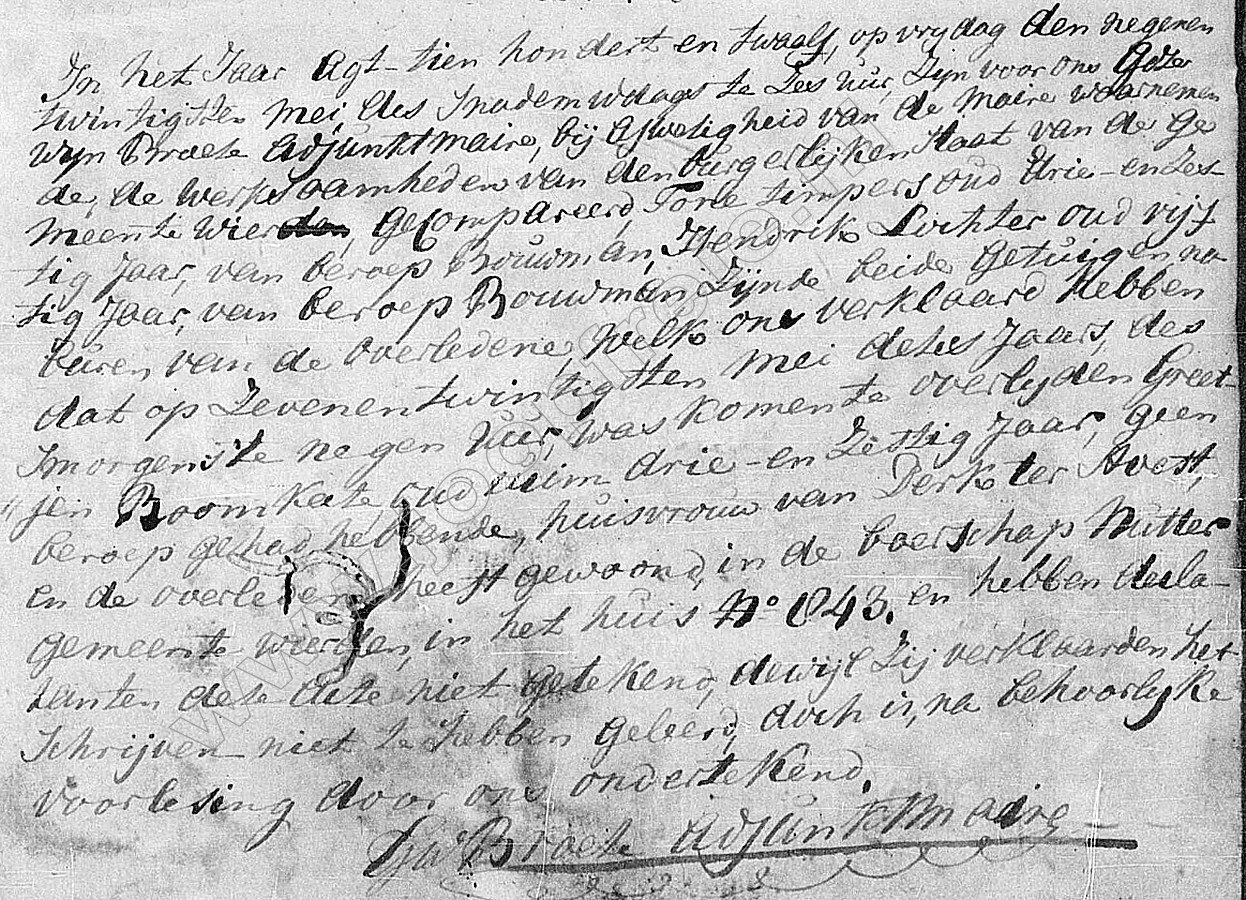 In het Jaar Agt-tien hondert en twaalf, op vrydag den negenen
twintigsten Mei, des Snademiddags te Zes uur, Zijn voor ons Gosen
Wyn Braete Adjunktmaire, bij Afwetigheid van de Maire waarnemen
de, de werksaamheden van den burgerlijken Staat van de Ge
meente Wierden, Gecompareerd, Tone timpers oud drie-en Zes-
tig Jaar, van beroep Bouwman, Hendrik Lochter oud vijf-
tig Jaar, van beroep Bouwman, Zijnde beide Getuigen na
buren van de overledene, welk ons verklaard hebben
dat op Zevenentwintigsten Mei deses Jaars, des
smorgens te negen uur, was komen te overlyden Greet-
jen Boomkate, oud ruim drie-en Zestig Jaar, geen
beroep gehad hebbende, huisvrouw van Derk ter Avest,
en de overledene heeft gewoond, in de boerschap Nutter
Gemeente wierden, in het huis No. 1843. en hebben decla-
ranten dese Acte niet getekend, dewijl Zij verklaarden het
Schrijven niet te hebben geleerd, doch is, na behoorlyke
voorlesing door ons ondertekend.
Gw Braete Adjunkt Maire
www.jocgro.nl